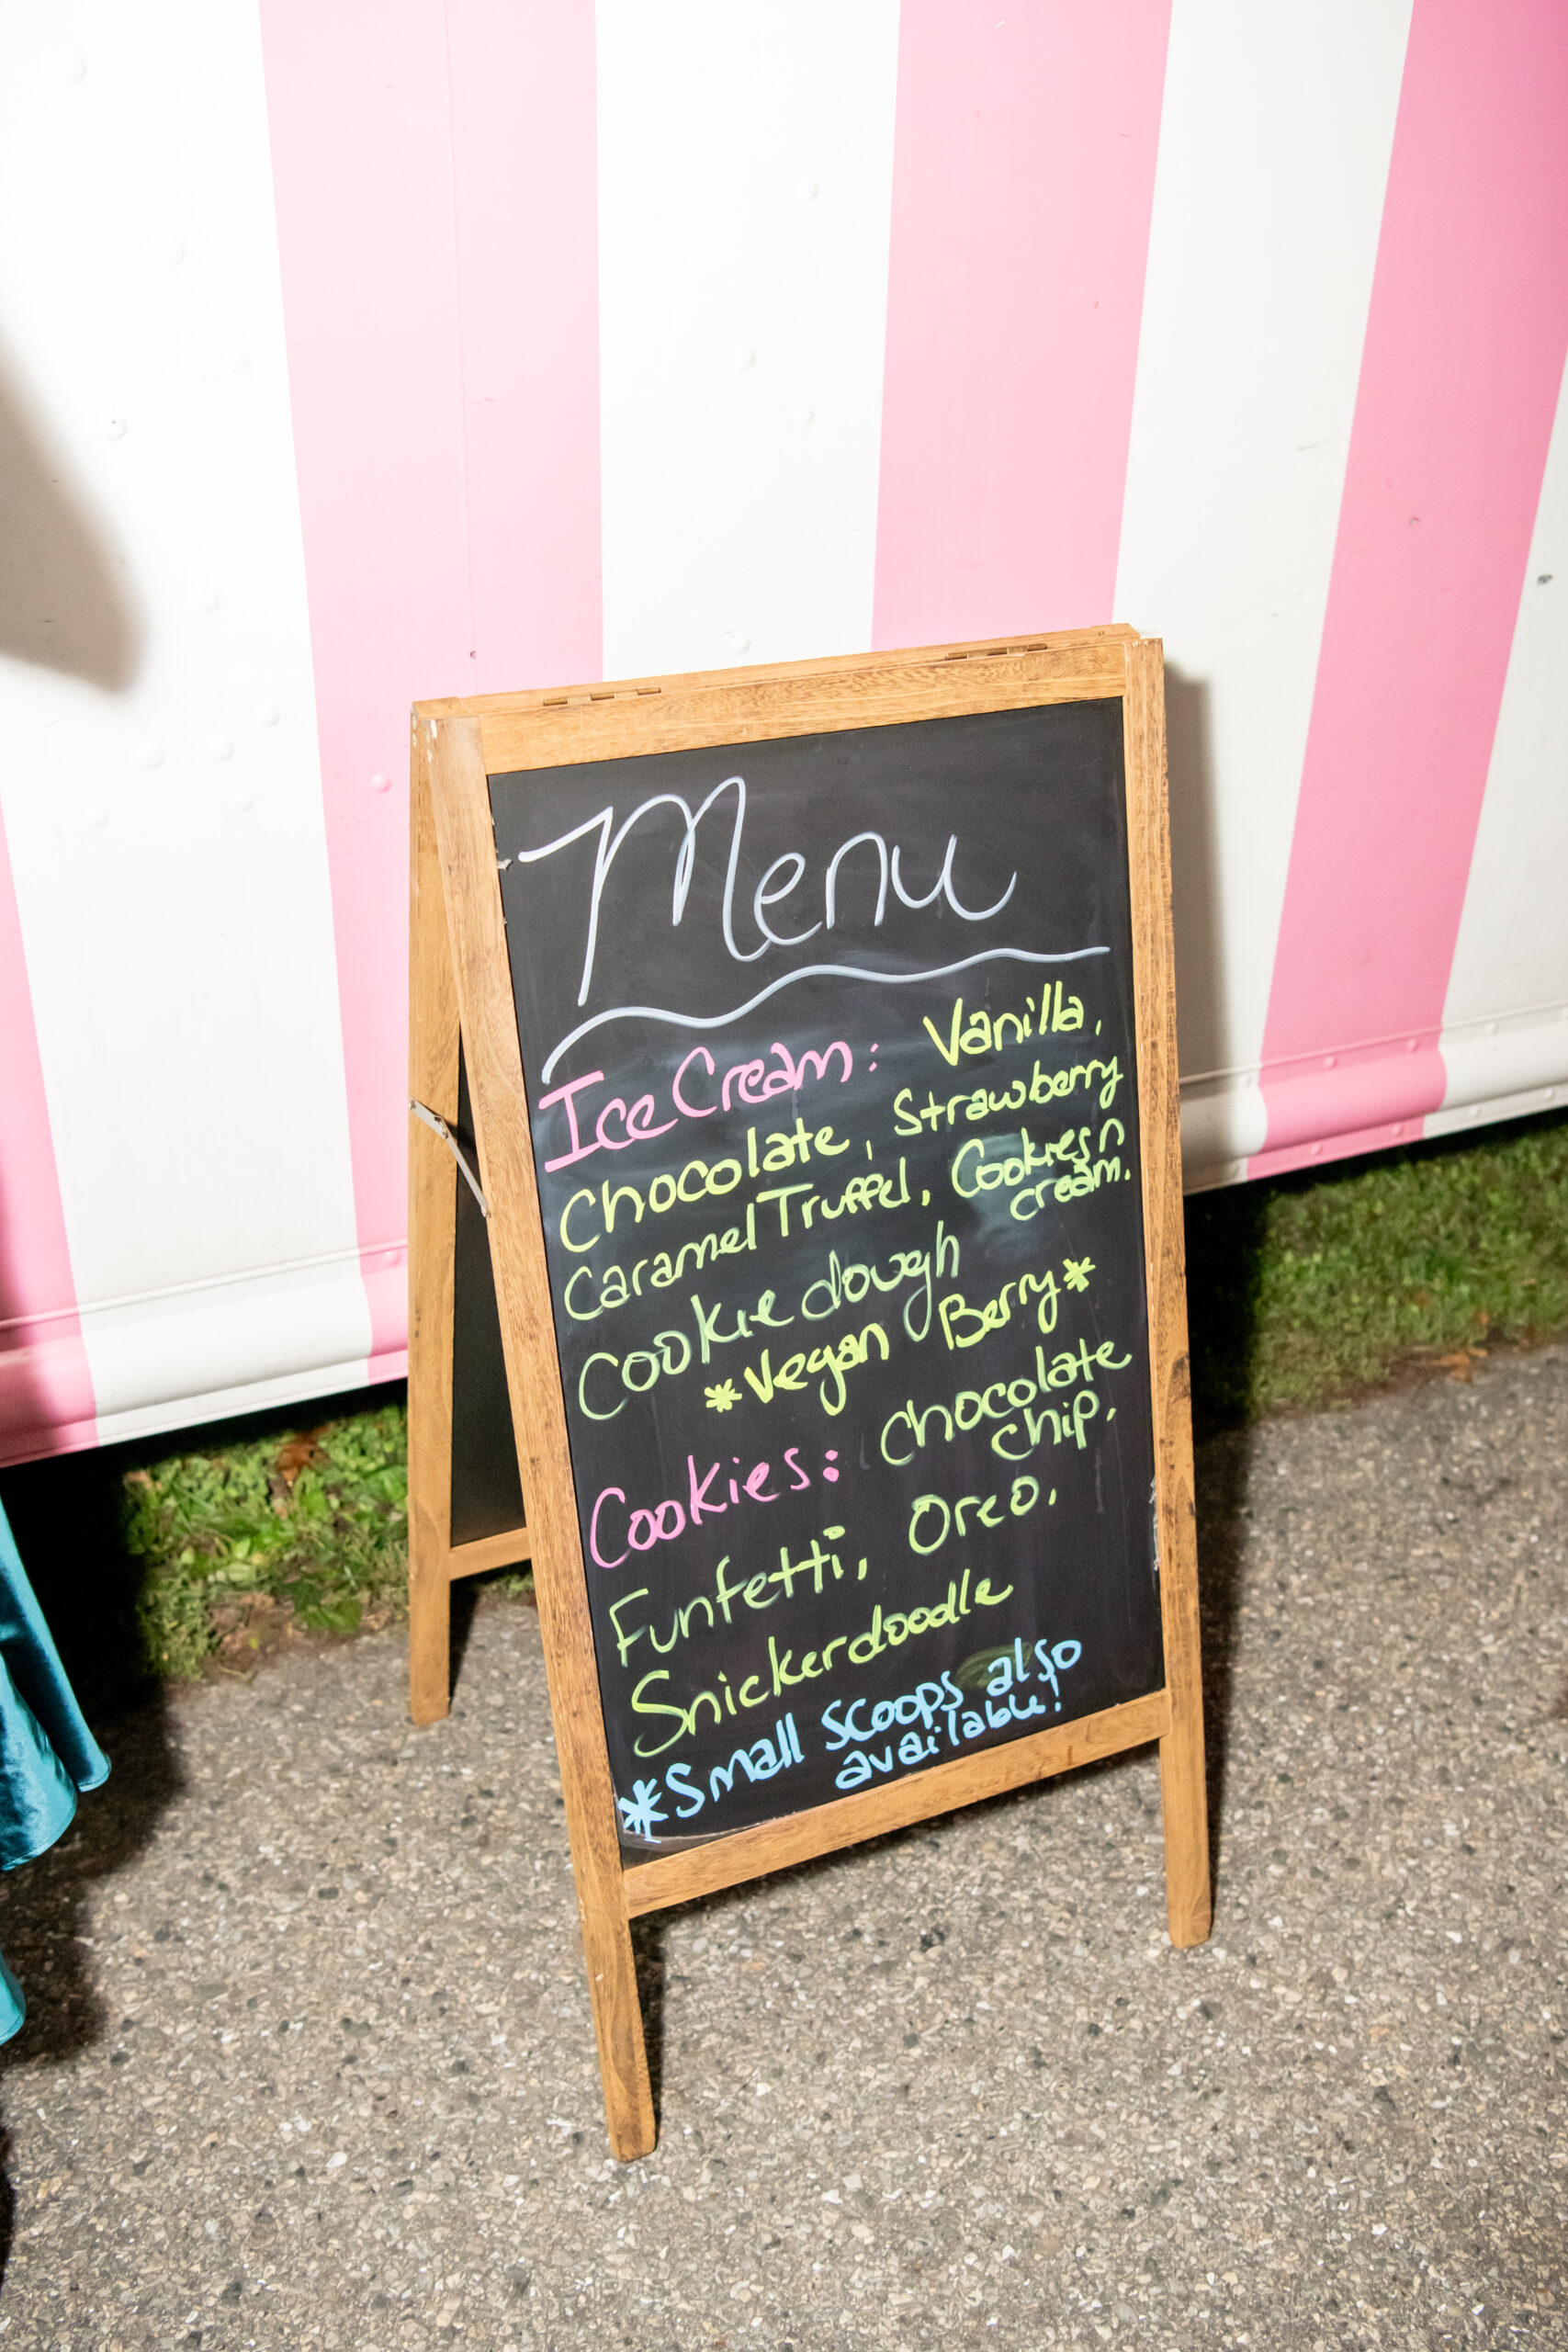 Menu
Ice Cream: Vanilla,
Chocolate, Strawberry
Caramel Truffel, Cookies n
cream.
Cookie dough
*Vegan Berry*
Cookies: Chocolate
chip,
Funfetti, Oreo,
Snickerdoodle
*Small scoops also
available!